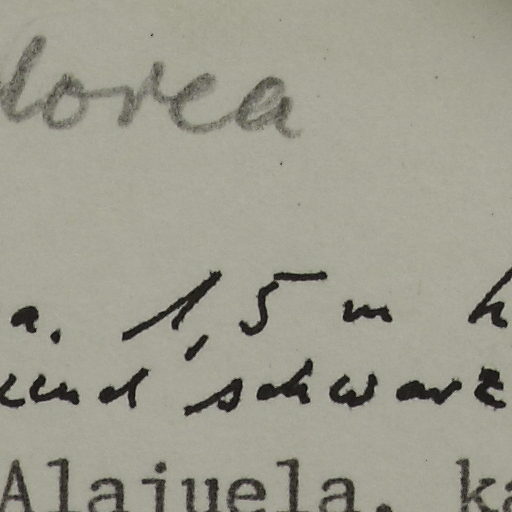 lorea
a. 1,5 m h
und schwarz
Alajuela, ka